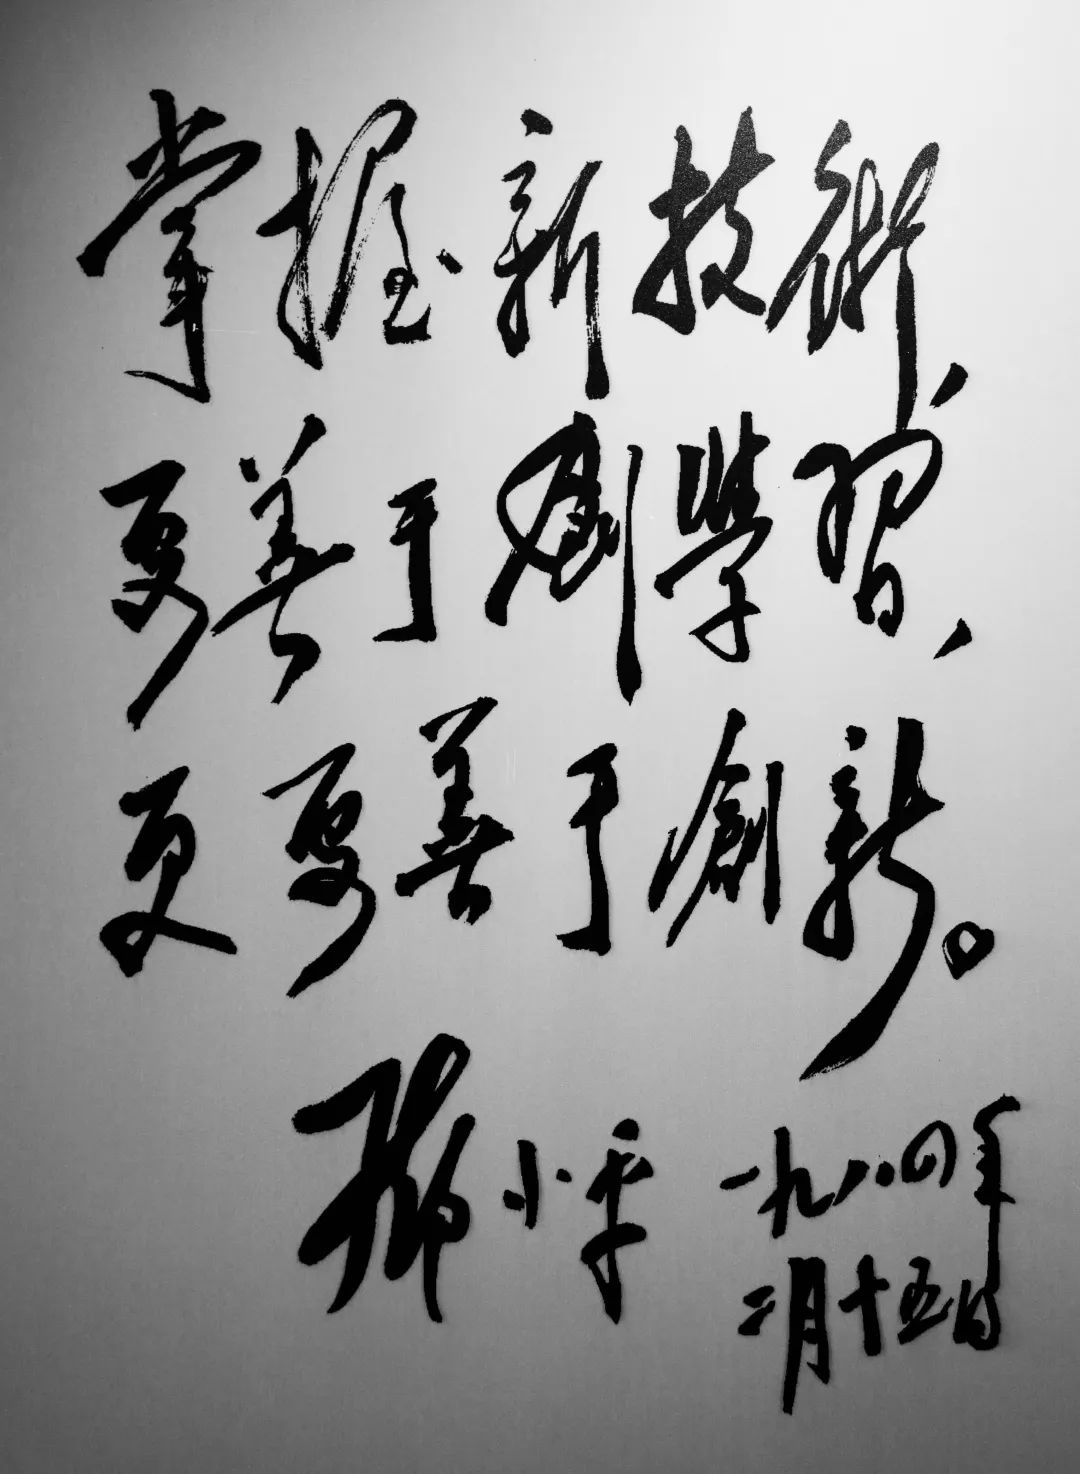 掌握新技術，
要善于學習，
更要善于創新。
鄧小平 一九八四年
二月十五日